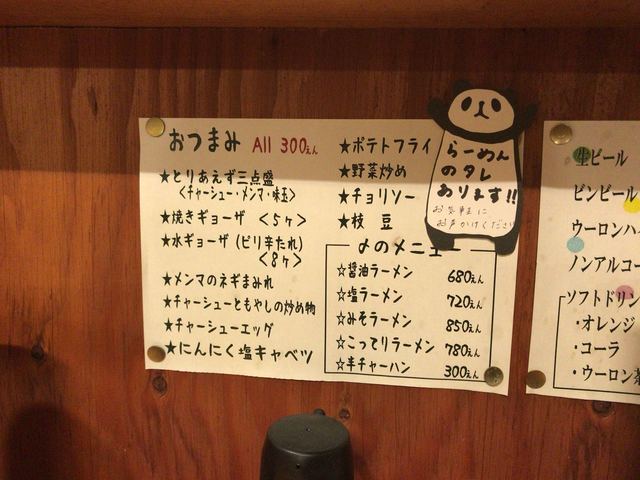 おつまみ All 300えん
★とりあえず三点盛
<チャーシュー・メンマ・味玉>
★焼きギョーザ <5ヶ>
★水ギョーザ (ピリ辛たれ)
<8ヶ>
★メンマのネギまみれ
★チャーシューともやしの炒め物
★チャーシューエッグ
★にんにく塩キャベツ
★ポテトフライ
★野菜炒め
★チョリソー
★枝豆
〆のメニュー
☆醤油ラーメン 680えん
☆塩ラーメン 720えん
☆みそラーメン 850えん
☆こってりラーメン 780えん
☆半チャーハン 300えん
らーめん
のタレ
あります!!
お気軽に
お声かけください
生ビール
ビンビール
ウーロンハイ
ノンアルコー
ソフトドリン
・オレンジ
・コーラ
・ウーロン茶